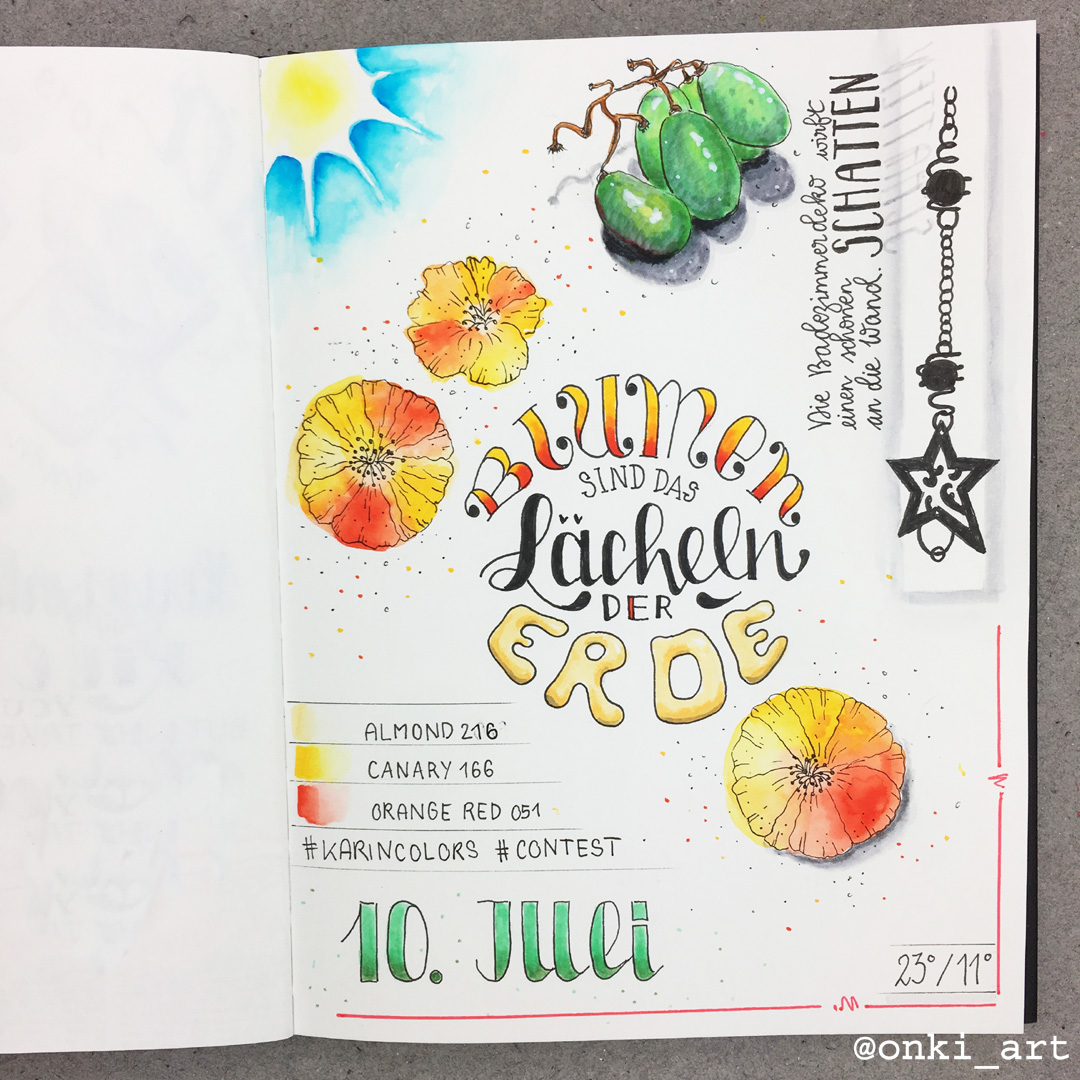 Die Badezimmerdeko wirft
einen schönen
an die Wand.
SCHATTEN
Blumen
SIND DAS
Lächeln
DER
ERDE
ALMOND 216
CANARY 166
ORANGE RED 051
#KARINCOLORS #CONTEST
10. Juli
23°/11°
@onki_art